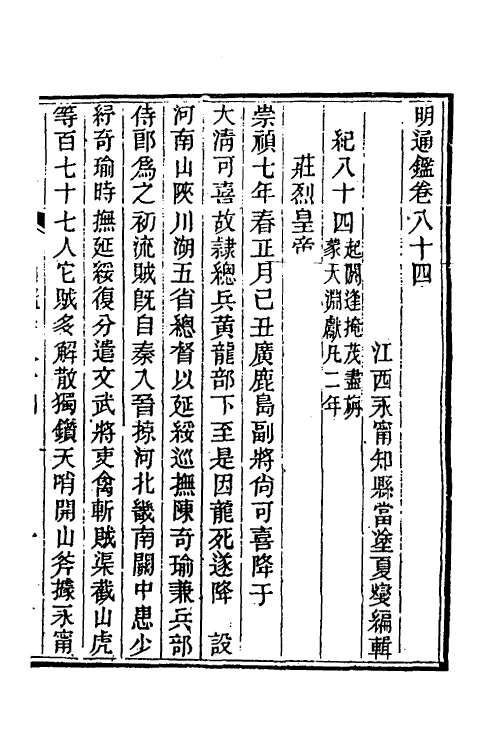 明通鑑卷八十四
江西永甯知縣當塗夏燮編輯
紀八十四起閼逢掩茂盡旃
蒙大淵獻凡二年
莊烈皇帝
崇禎七年春正月己丑廣鹿島副將尙可喜降于
大淸可喜故隸總兵黃龍部下至是因龍死遂降 設
河南山陜川湖五省總督以延綏巡撫陳奇瑜兼兵部
侍郎爲之初流賊旣自秦入晉掠河北畿南關中患少
紓奇瑜時撫延綏復分遣文武將吏禽斬賊渠截山虎
等百七十七人它賊多解散獨鑽天哨開山斧據永甯